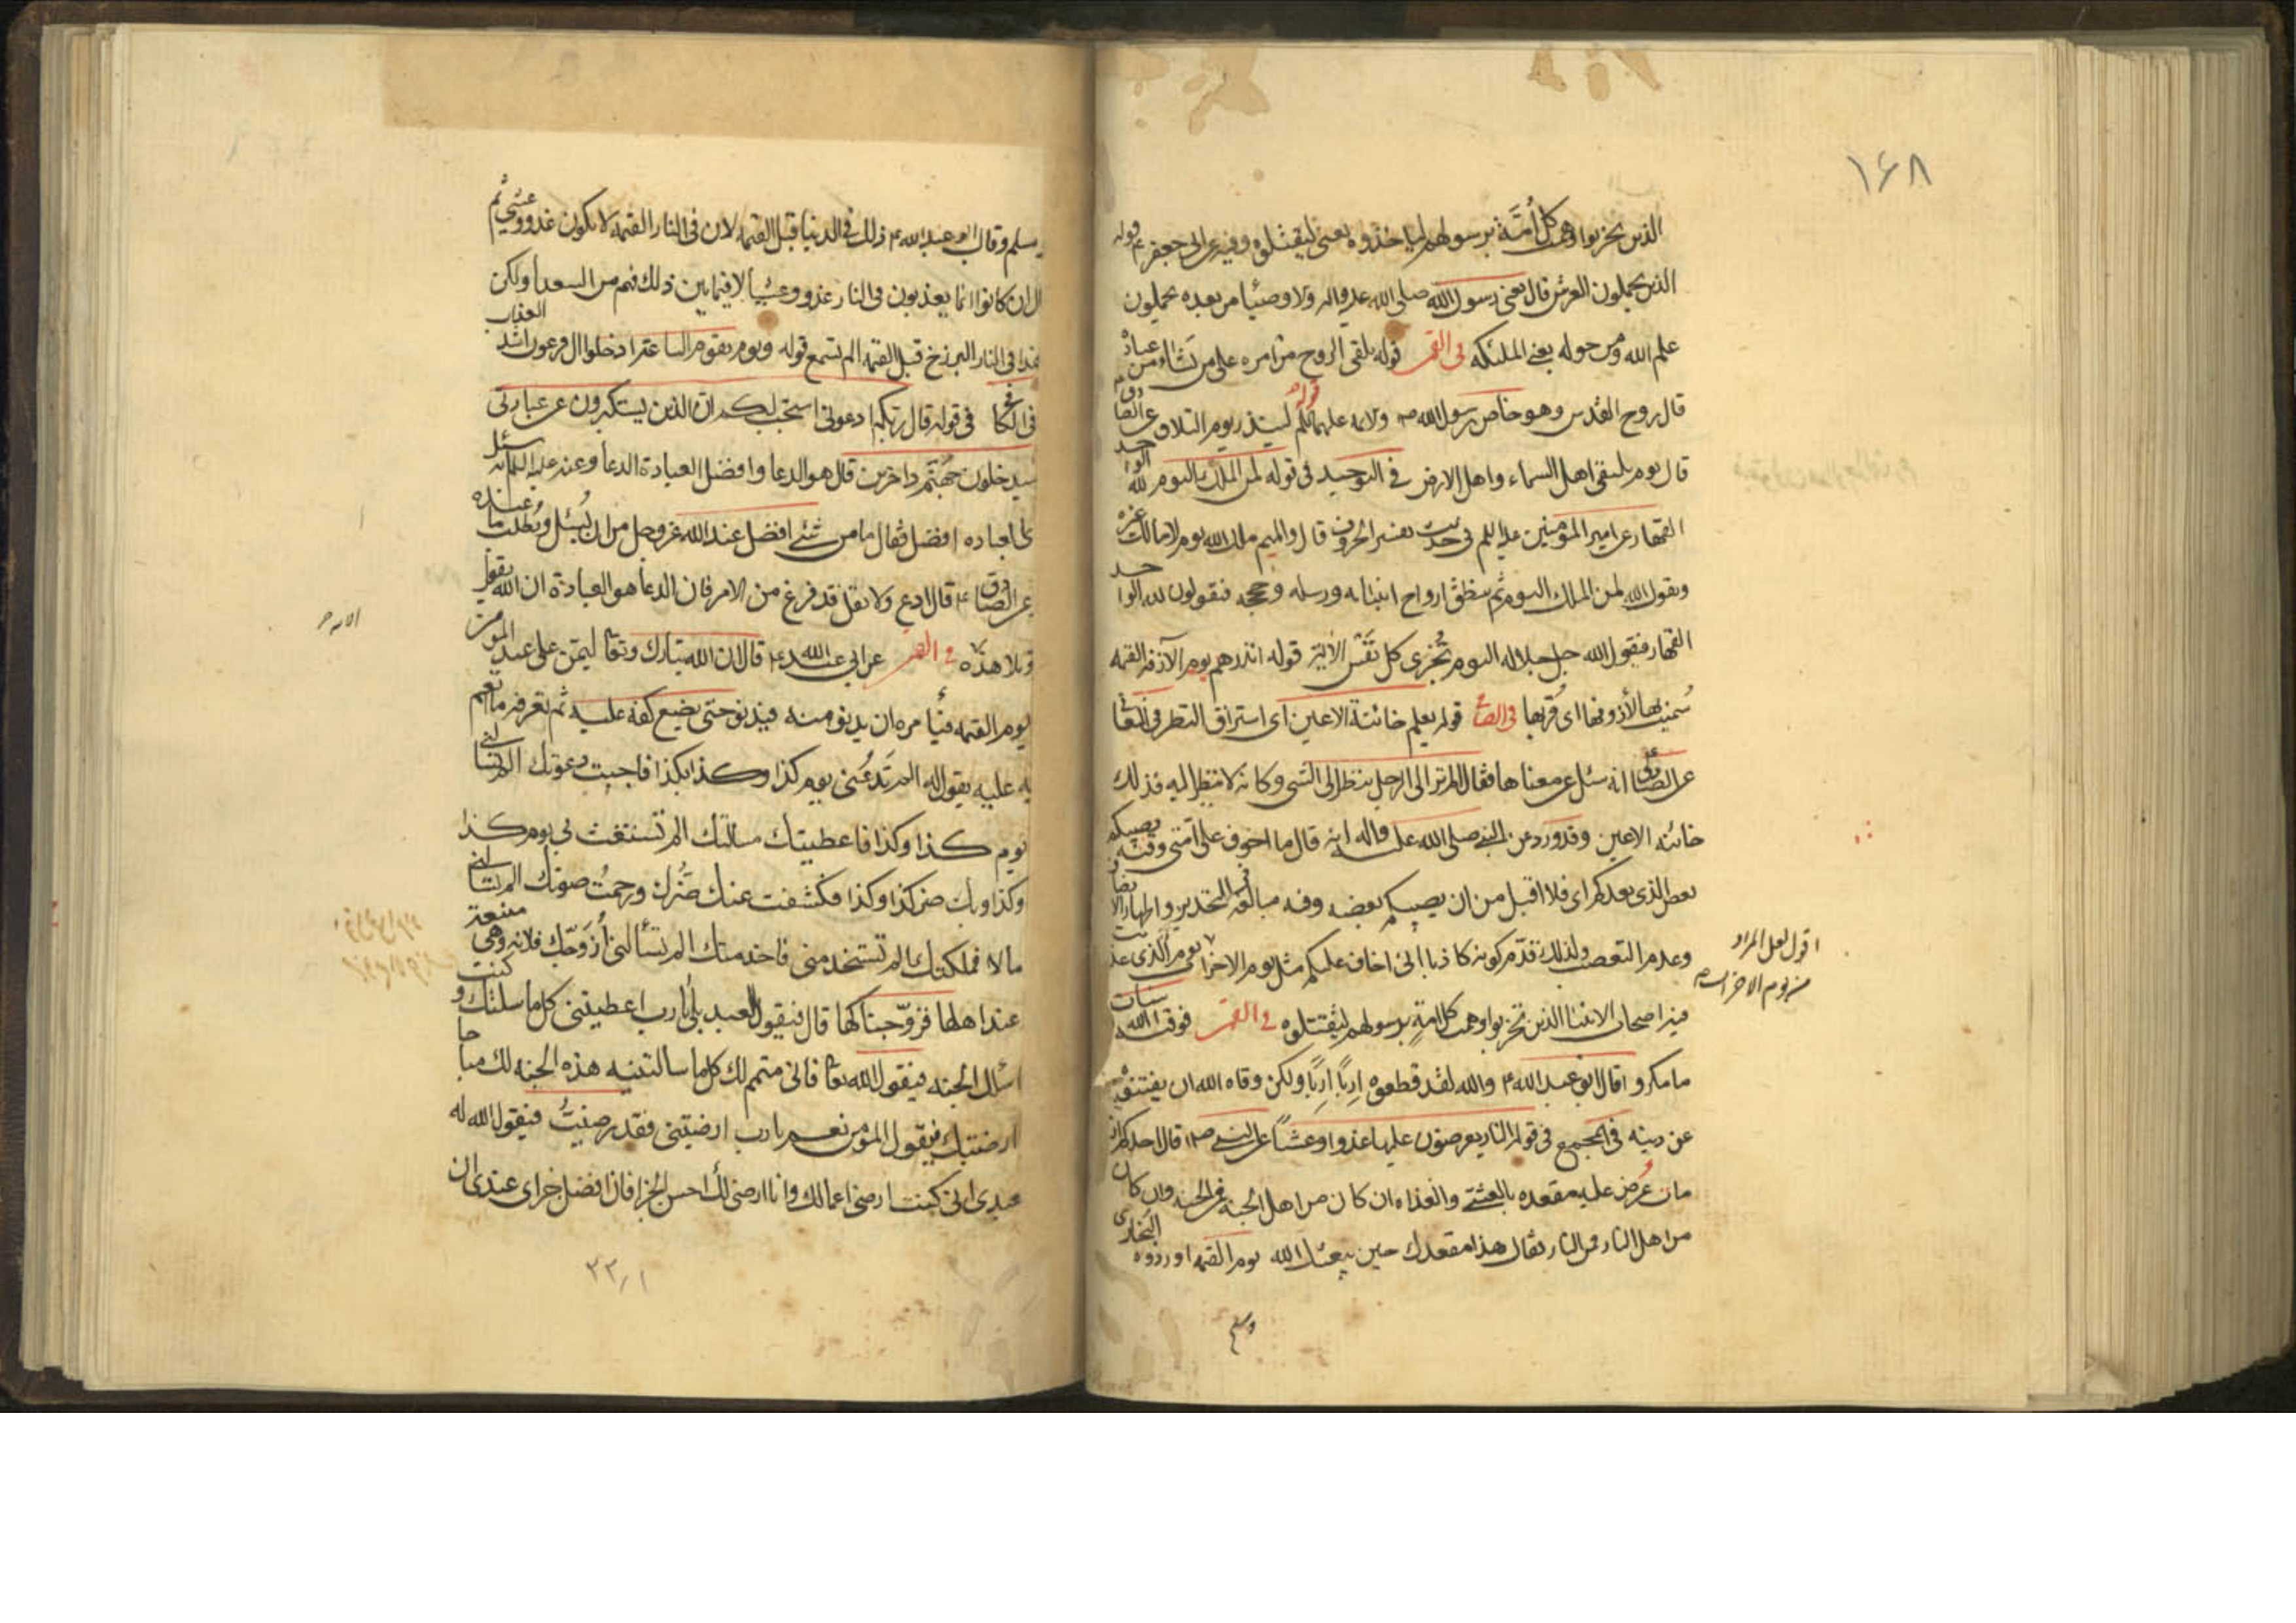 ١٦٨
الذين تحزبوا وهمت كل أمة برسولهم ليأخذوه يعنى ليقتلوه وفيه عن ابى جعفر ع قوله
الذين يحملون العرش قال يعنى رسول الله صلى الله عليه واله والاوصيا من بعده يحملون
علم الله ومن حوله يعنى الملئكه فى القمى قوله يلقى الروح من امره على من يشاء من عباده
قال روح القدس وهو خاص برسول الله ص والايمه عليهم السلم قوله لينذر يوم التلاق عن الصادق ع
قال يوم يلتقى اهل السماء واهل الارض فى التوحيد فى قوله لمن الملك اليوم لله الواحد
القهار عن امير المؤمنين عليه السلم فى حديث تفسير الحروف قال والميم ملك الله يوم لا مالك غيره
ويقول الله لمن الملك اليوم ثم ينطق ارواح انبيائه ورسله وحججه فيقولون لله الواحد
القهار فيقول الله جل جلاله اليوم تجزى كل نفس الآية قوله انذرهم يوم الآزفه القيمه
سميت بها لأزوفها اى قربها فى الصافى قوله يعلم خائنة الاعين اى استراق النظر فى المعانى
عن الصادق انه سئل عن معناها فقال الم تر الى الرجل ينظر الى الشى وكانه لا ينظر اليه فذلك
خائنه الاعين وقد ورد عن النبى صلى الله عليه واله انه قال ما اخوف على امتى وفتنه يصيبكم
بعض الذى يعدكم اى فلا اقل من ان يصيبكم بعضه وفيه مبالغة فى التحذير واظهار الانصاف
وعدم التعصب ولذلك قدّم كونه كاذبا انى اخاف عليكم مثل يوم الاحزاب يعنى يوم الذى عذبت
اقول لعل المراد
من يوم الاحزاب
فيه اصحاب الانبيا الذين تحزبوا وهمت كل امةٍ برسولهم ليقتلوه فى القمى فوقيه الله سيئات
ما مكروا قال ابو عبد الله ع والله لقد قطعوه إرباً إرباً ولكن وقاه الله ان يفتنوه
عن دينه فى المجمع فى قوله النار يعرضون عليها غدوا وعشياً عن النبى ص قال احدكم اذا
مات عُرض عليه مقعده بالعشى والغداه ان كان من اهل الجنة فمن الجنه وان كان
من اهل النار فمن النار يقال هذا مقعدك حين يبعثك الله يوم القيمه اورده البخارى
وسلم
مسلم وقال ابو عبد الله ع ذلك فى الدنيا قبل القيمه لان فى النار القيمه لا يكون غدو وعشى ثم
قال ان كانوا انما يعذبون فى النار غدو وعشيا لا فيما بين ذلك فهم من السعدا ولكن
هذا فى النار البرزخ قبل القيمه الم تسمع قوله ويوم تقوم الساعة ادخلوا ال فرعون اشد العذاب
فى الكافى فى قوله قال ربكم ادعونى استجب لكم ان الذين يستكبرون عن عبادتى
سيدخلون جهنم داخرين قال هو الدعا وافضل العبادة الدعا وعنه عليه السلم انه سئل
اى العباده افضل فقال ما من شئ افضل عند الله عز وجل من ان يُسئل ويُطلب ما عنده
عن الصادق ع قال ادع ولا تقل قد فرغ من الامر فان الدعا هو العبادة ان الله يقول
وتلا هذه الايه فى القمى عن ابى عبد الله ع قال ان الله تبارك وتعا ليمنّ على عبده المؤمن
يوم القيمه فيأمره ان يدنو منه فيدنو حتى يضع كفه عليه ثم يعرفه ما انعم
به عليه يقول له الم تدعنى يوم كذا وكذا بكذا فاجبت دعوتك الم تسالنى
يوم كذا وكذا فاعطيتك مسالتك الم تستغث بى يوم كذا
وكذا وبك ضر كذا وكذا فكشفت عنك ضُرّك ورحمتُ صوتك الم تسالنى
مالا فملكتك الم تستخدمنى فاخدمتك الم تسألنى أزوّجك فلانه وهى منيعة
عند اهلها فزوّجناكها قال فيقول العبد بلى يا رب اعطيتنى كل ما سألتك وكنت
اسئلك الجنه فيقول الله تعا فانى متمم لك كل ما سالتنيه هذه الجنه لك مباحا
ارضيتك فيقول المؤمن نعم يا رب ارضيتنى فقد رضيتُ فيقول الله له
عبدى انى كنت ارضى اعمالك وانا ارضى لك احسن الجزا فان افضل جزاى عندى ان